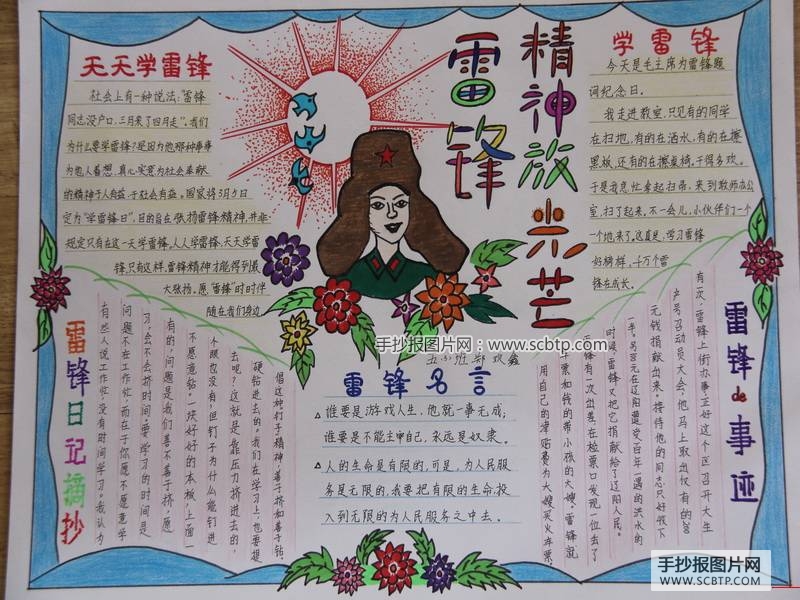 雷锋
精神放光芒
天天学雷锋
社会上有一种说法:"雷锋
同志没户口,三月来了四月走"。我们
为什么要学雷锋?是因为他那种事事
为他人着想,真心实意为社会奉献
的精神于人有益,于社会有益。国家将3月5日
定为"学雷锋日",目的旨在张扬雷锋精神,并非
规定只有在这一天学雷锋,人人学雷锋,天天学雷
锋,只有这样,雷锋精神才能得到最
大张扬。愿"雷锋"时时伴
随在我们身边
学雷锋
今天是毛主席为雷锋题
词纪念日。
我走进教室,只见有的同学
在扫地,有的在洒水,有的在擦
黑板,还有的在擦桌椅,干得多欢。
于是我急忙拿起扫帚,来到教师办公
室,扫了起来。不一会儿,小伙伴们一个
一个地来了。这真是:学习雷锋
好榜样,千万个雷
锋在成长。
手抄报图片网:www.scbtp.com
雷锋日记摘抄
有些人说工作忙,没有时间学习。我认为
问题不在工作忙,而在于你愿不愿意学
习,会不会挤时间。要学习的时间是
有的,问题是我们善不善于挤,愿
不愿意钻。一块好好的木板,上面一
个眼也没有,但钉子为什么能钉进
去呢?这就是靠压力挤进去的,
硬钻进去的。我们在学习上也要提
倡这种钉子精神,善于挤和善于钻。
雷锋名言
谁要是游戏人生,他就一事无成;
谁要是不能主宰自己,永远是奴隶。
人的生命是有限的,可是,为人民服
务是无限的,我要把有限的生命投
入到无限的为人民服务之中去。
雷锋de事迹
有一次,雷锋上街办事正好这个区召开大生
产号召动员大会,他马上取出仅有的200
元钱捐献出来。接待他的同志只好收下
一半。另100元在辽阳遭受百年一遇的洪水的
时候,雷锋又把它捐献给了辽阳人民。
雷锋有一次出差在检票口发现一位丢了
车票和钱的带小孩的大嫂。雷锋就
用自己的津贴费为大嫂买火车票。
手抄报图片网
WWW.SCBTP.COM